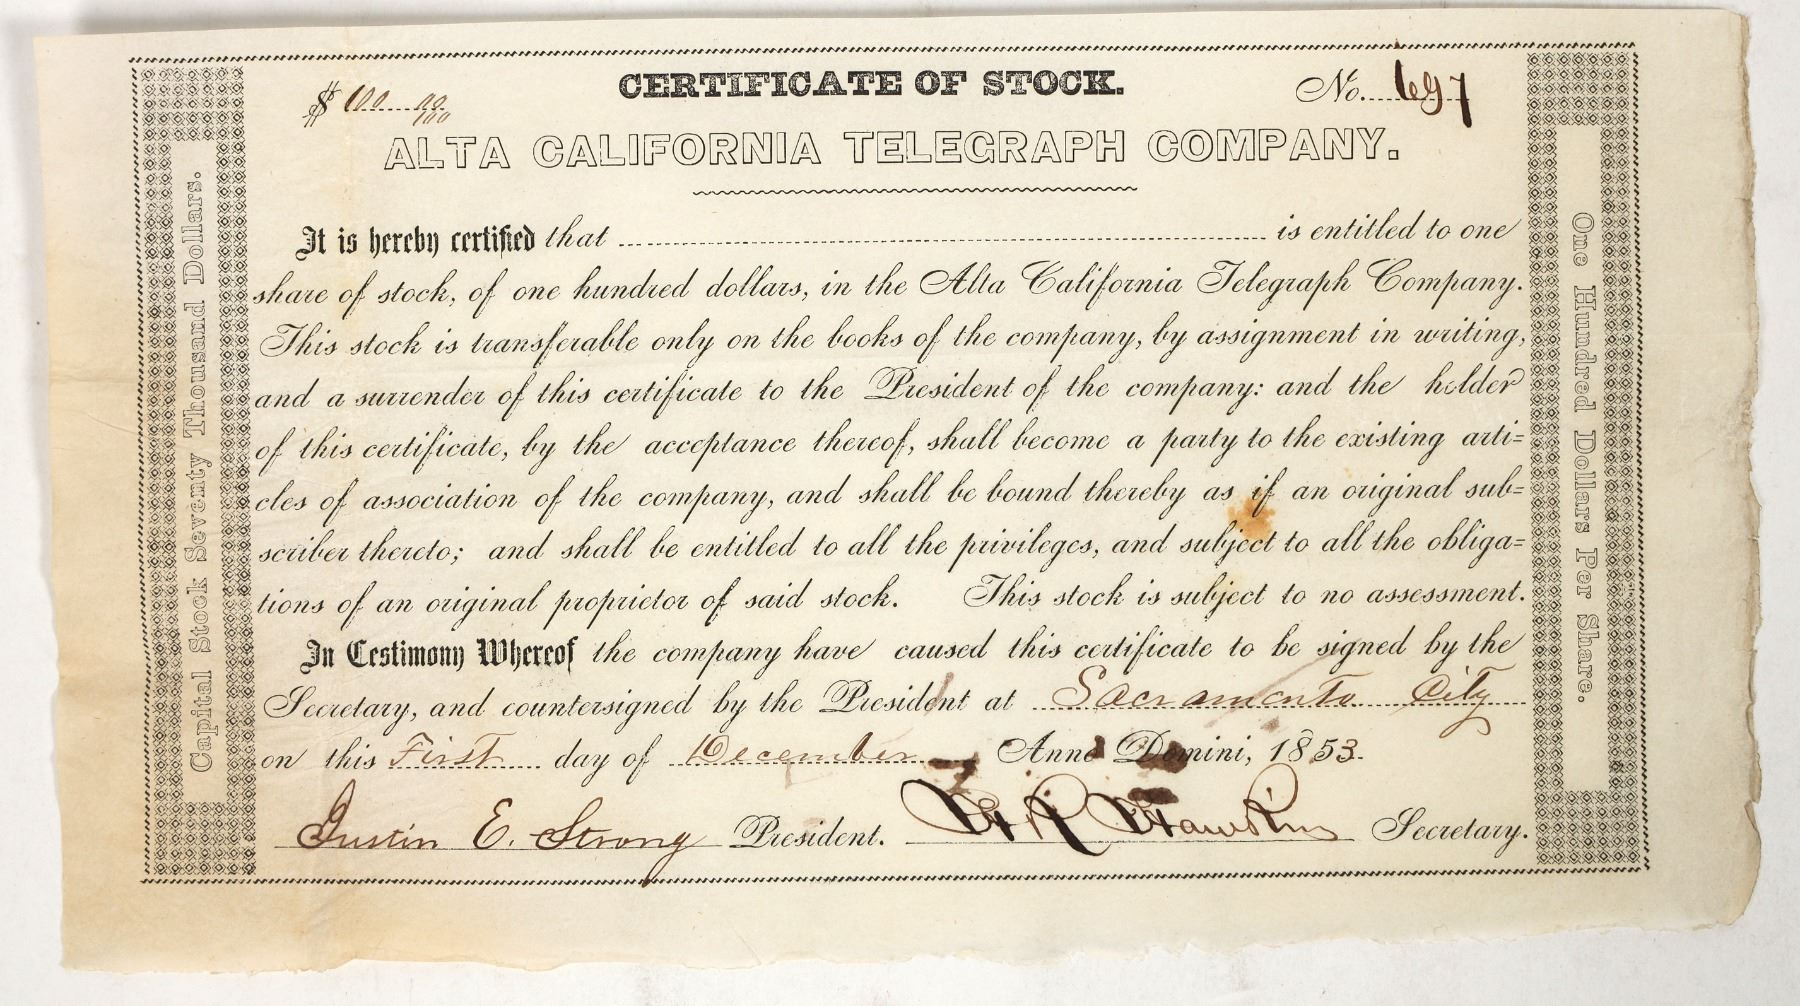 CERTIFICATE OF STOCK.
$ 100 00/100
No. 697
ALTA CALIFORNIA TELEGRAPH COMPANY.
It is hereby certified that is entitled to one
share of stock, of one hundred dollars, in the Alta California Telegraph Company.
This stock is transferable only on the books of the company, by assignment in writing,
and a surrender of this certificate to the President of the company: and the holder
of this certificate, by the acceptance thereof, shall become a party to the existing arti=
cles of association of the company, and shall be bound thereby as if an original sub=
scriber thereto; and shall be entitled to all the privileges, and subject to all the obliga=
tions of an original proprietor of said stock. This stock is subject to no assessment.
In Testimony Whereof the company have caused this certificate to be signed by the
Secretary, and countersigned by the President at Sacramento City
on this First day of December Anno Domini, 1853.
Justin E. Strong President. Hawkins Secretary.
Capital Stock Seventy Thousand Dollars.
One Hundred Dollars Per Share.